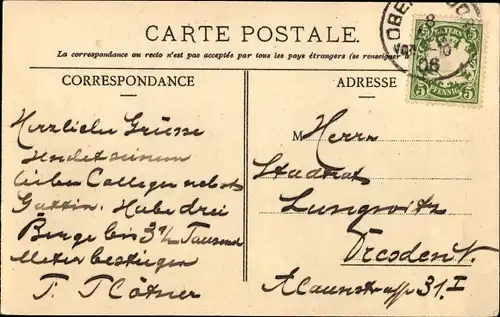 CARTE POSTALE.
La correspondance au recto n'est pas acceptée par tous les pays étrangers (se renseigner
CORRESPONDANCE
ADRESSE
OBE
8
06
BAYERN
5 5
PFENNIG
Herzliche Grüsse
sendet seinem
lieben Collegen nebst
Gattin. Habe drei
Berge bis 3½ Tausend
Meter bestiegen
M Herrn
Stadtrat
Lungwitz
Dresden N.
Alaunstrasse 31. I